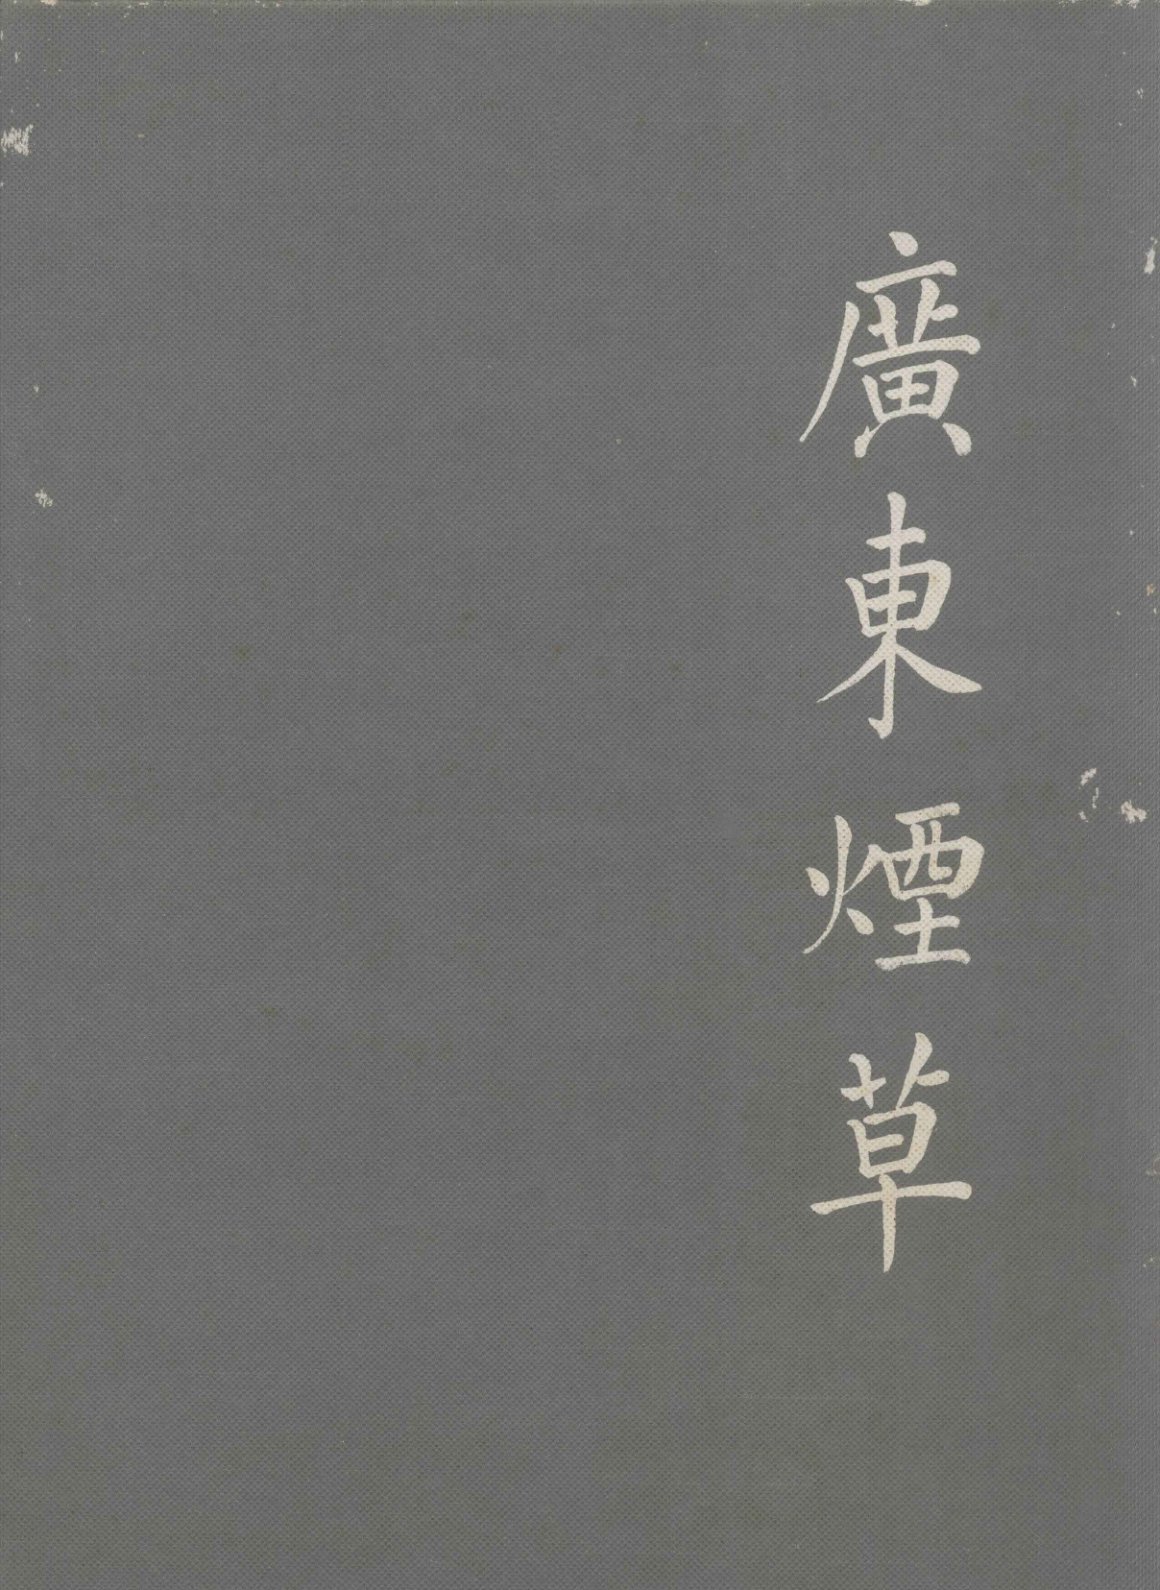 廣東煙草